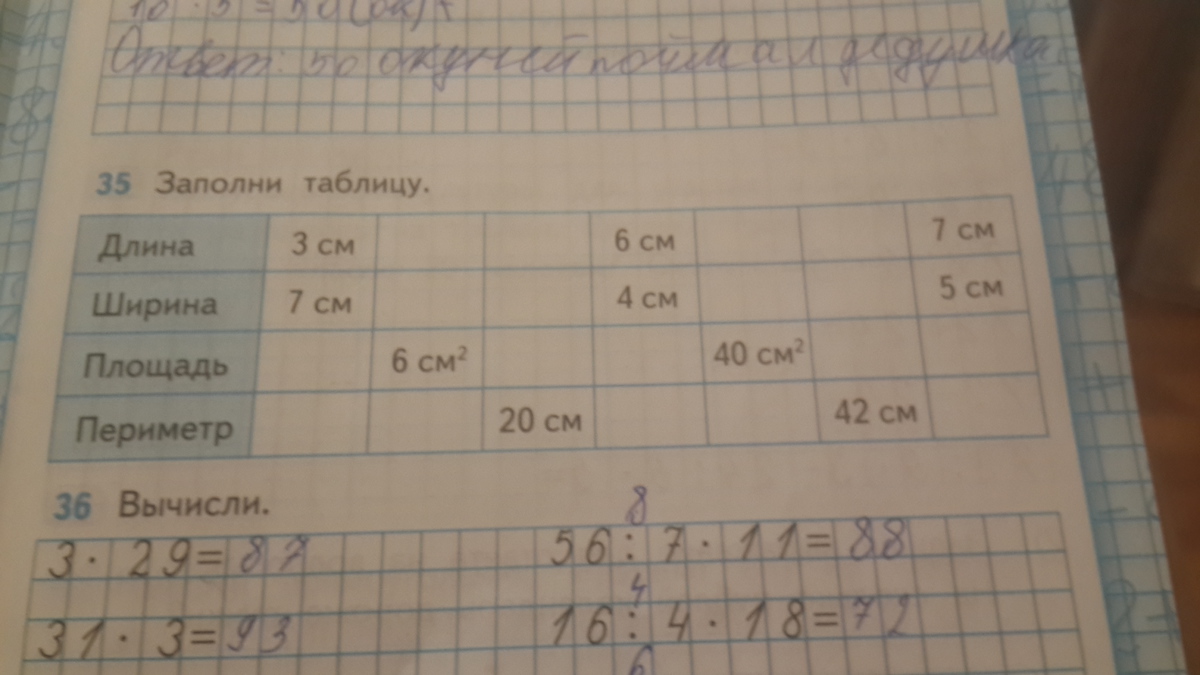 10 · 5 = 50 (ок)
Ответ: 50 окуней поймал дедушка.
35 Заполни таблицу.
Длина 3 см 6 см 7 см
Ширина 7 см 4 см 5 см
Площадь 6 см² 40 см²
Периметр 20 см 42 см
36 Вычисли.
8
3 · 29 = 87 56 : 7 · 11 = 88
4
31 · 3 = 93 16 : 4 · 18 = 72
6